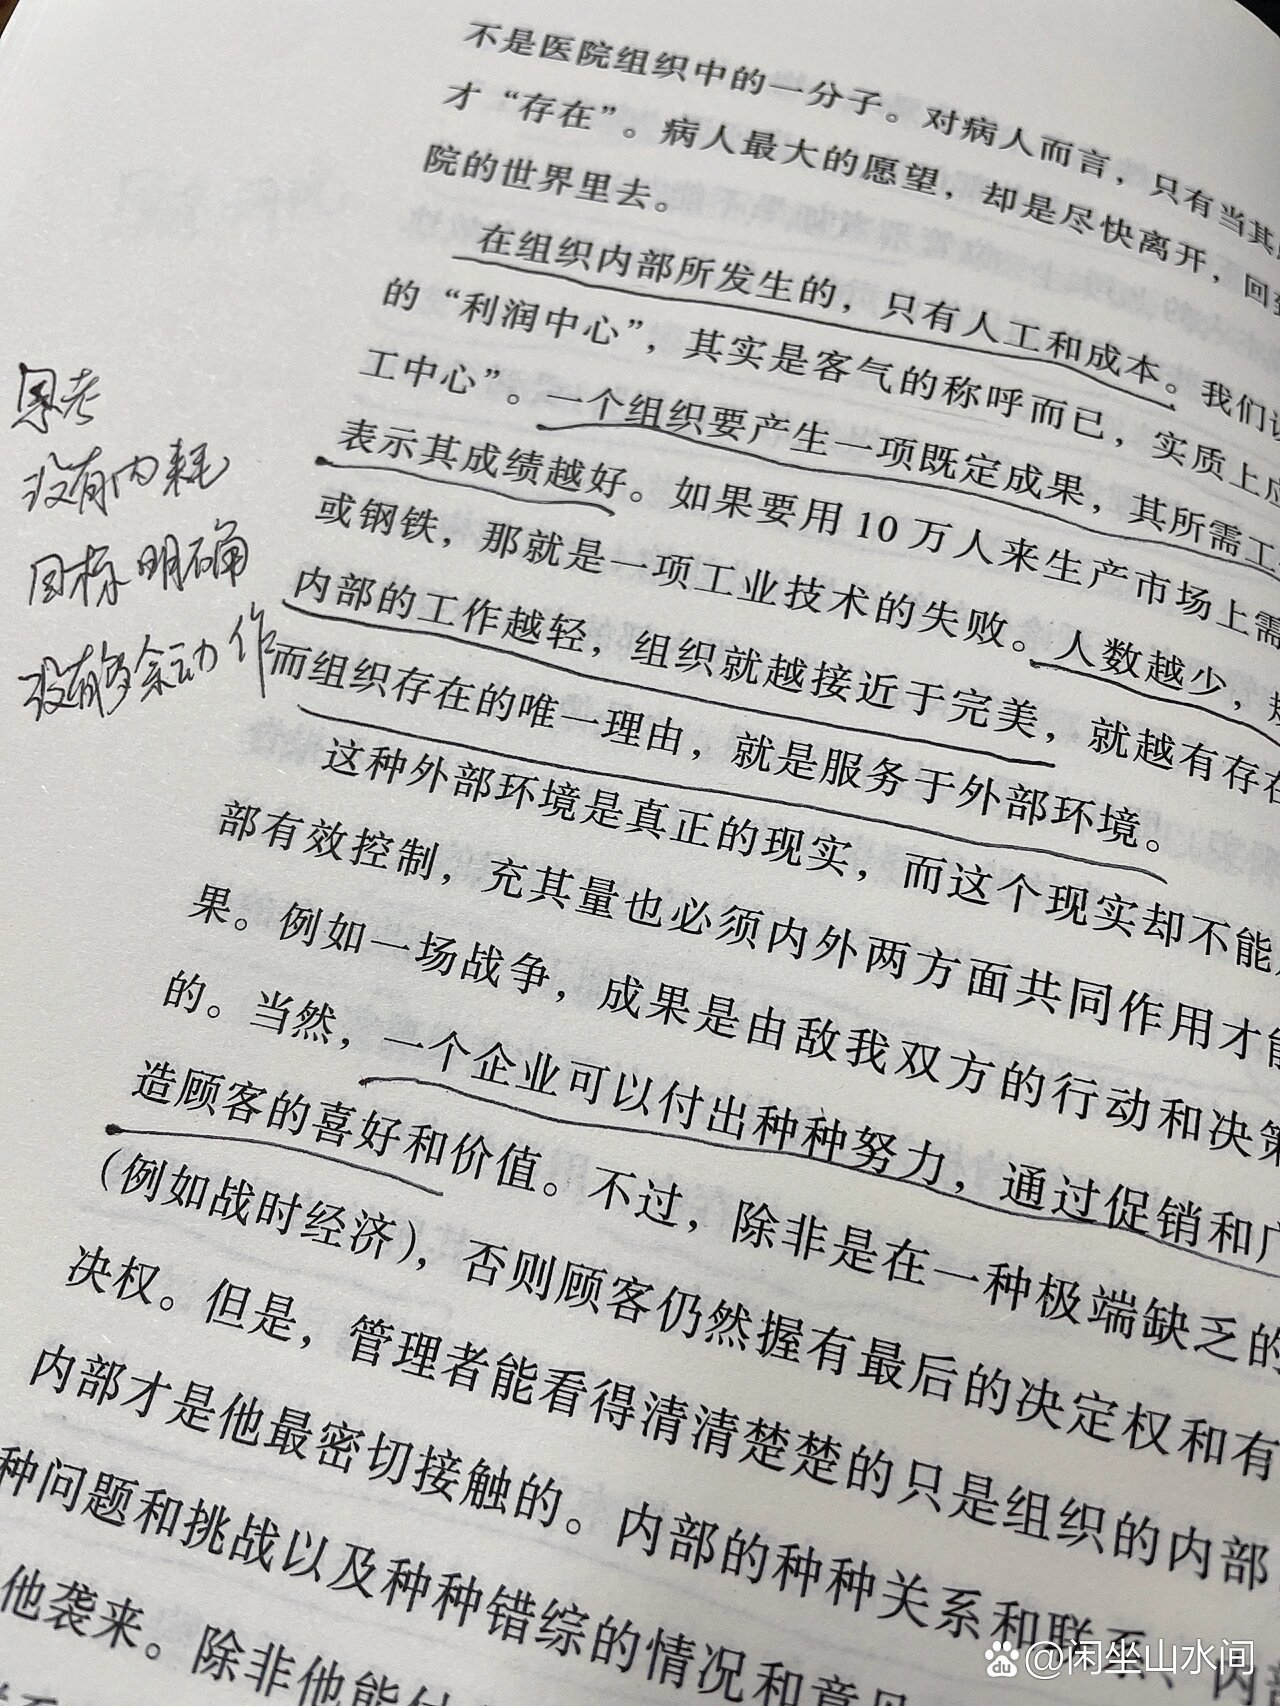 不是医院组织中的一分子。对病人而言，只有当其
才“存在”。病人最大的愿望，却是尽快离开，回到
院的世界里去。
在组织内部所发生的，只有人工和成本。我们说
的“利润中心”，其实是客气的称呼而已，实质上应
工中心”。一个组织要产生一项既定成果，其所需工
表示其成绩越好。如果要用10万人来生产市场上需
或钢铁，那就是一项工业技术的失败。人数越少，规
内部的工作越轻，组织就越接近于完美，就越有存在
而组织存在的唯一理由，就是服务于外部环境。
这种外部环境是真正的现实，而这个现实却不能
部有效控制，充其量也必须内外两方面共同作用才能
果。例如一场战争，成果是由敌我双方的行动和决策
的。当然，一个企业可以付出种种努力，通过促销和广
造顾客的喜好和价值。不过，除非是在一种极端缺乏的
（例如战时经济），否则顾客仍然握有最后的决定权和有
决权。但是，管理者能看得清清楚楚的只是组织的内部
内部才是他最密切接触的。内部的种种关系和联系、内部
种问题和挑战以及种种错综的情况和意见
他袭来。除非他能付
思考
没有内耗
目标明确
没有多余动作
@闲坐山水间